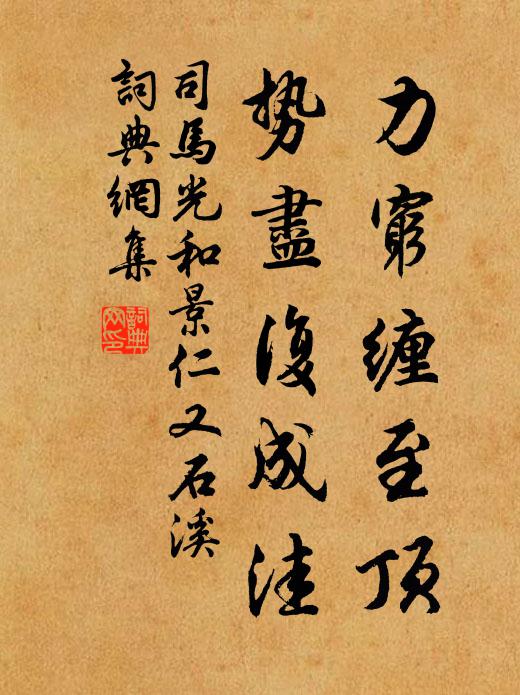 力窮纏至頂
势盡復成洼
司馬光和景仁又石溪
詞典網集
詞典网印